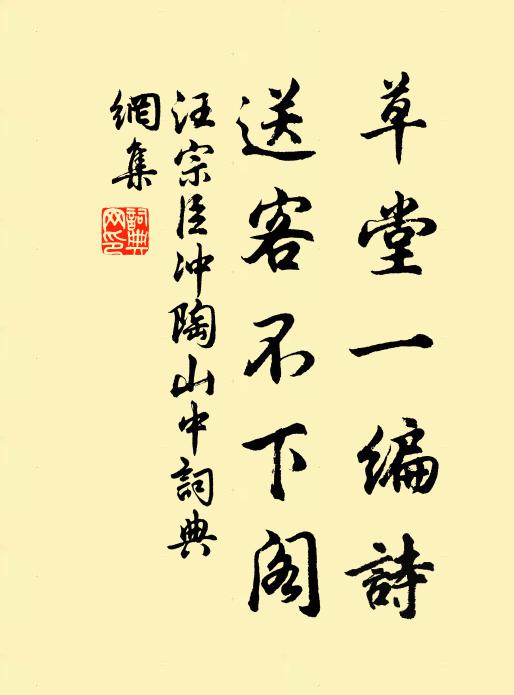 草堂一编詩
送客不下阁
汪宗臣冲陶山中詞典
網集
詞典
网印